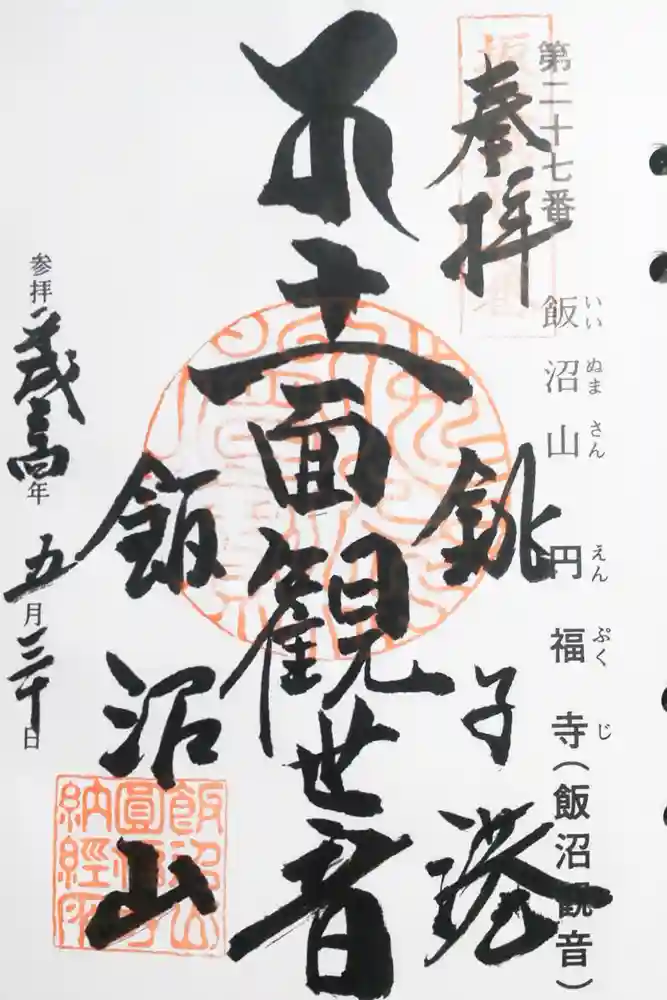 第二十七番
飯沼山 円福寺(飯沼観音)
いい ぬま さん えん ぷく じ
奉拝
銚子港
十一面観世音
飯沼山
参拝 年 五月三十日
飯沼山
圓福寺
納経所